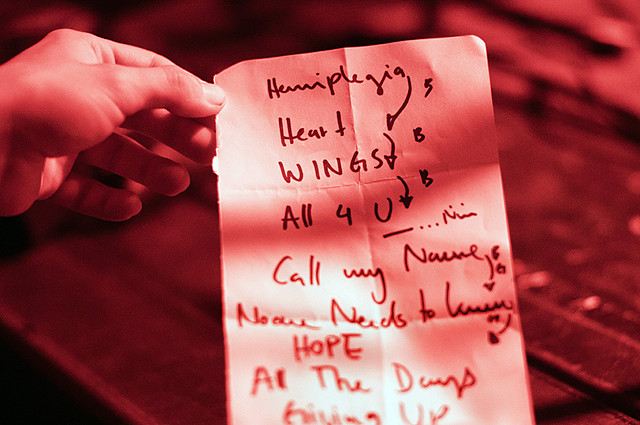 Hemiplegia
B
Heart
B
WINGS
B
All 4 U
Call my Name
Noone Needs to know
B
HOPE
All The Days
Giving UP